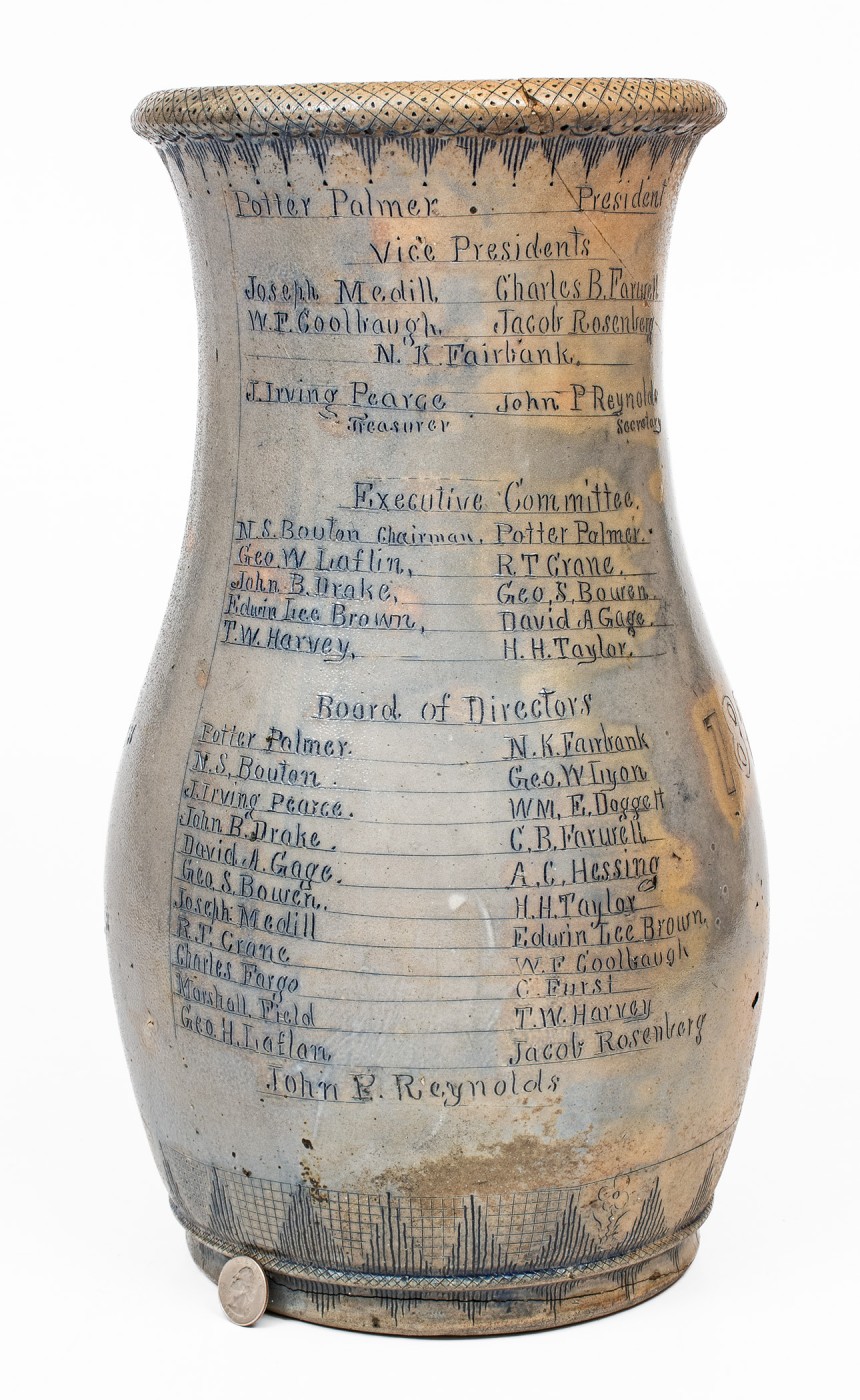 Potter Palmer President
Vice Presidents
Joseph Medill, Charles B. Farwell
W.F. Coolbaugh, Jacob Rosenberg
N. K Fairbank.
J. Irving Pearce John P Reynolds
Treasurer Secretary
Executive Committee.
N.S. Bouton Chairman, Potter Palmer.
Geo. W Laflin, R.T Crane.
John B. Drake, Geo. S. Bowen.
Edwin Lee Brown, David A Gage.
T.W. Harvey, H.H. Taylor.
Board of Directors
Potter Palmer. N.K. Fairbank
N.S. Bouton. Geo. W Lyon
J. Irving Pearce. WM. E. Doggett
John B. Drake. C.B. Farwell
David A. Gage. A.C. Hessing
Geo. S. Bowen. H.H. Taylor
Joseph Medill Edwin Lee Brown,
R.T. Crane W.F Coolbaugh
Charles Fargo C. Furst
Marshall Field T.W. Harvey
Geo. H. Laflan, Jacob Rosenberg
John P. Reynolds
18